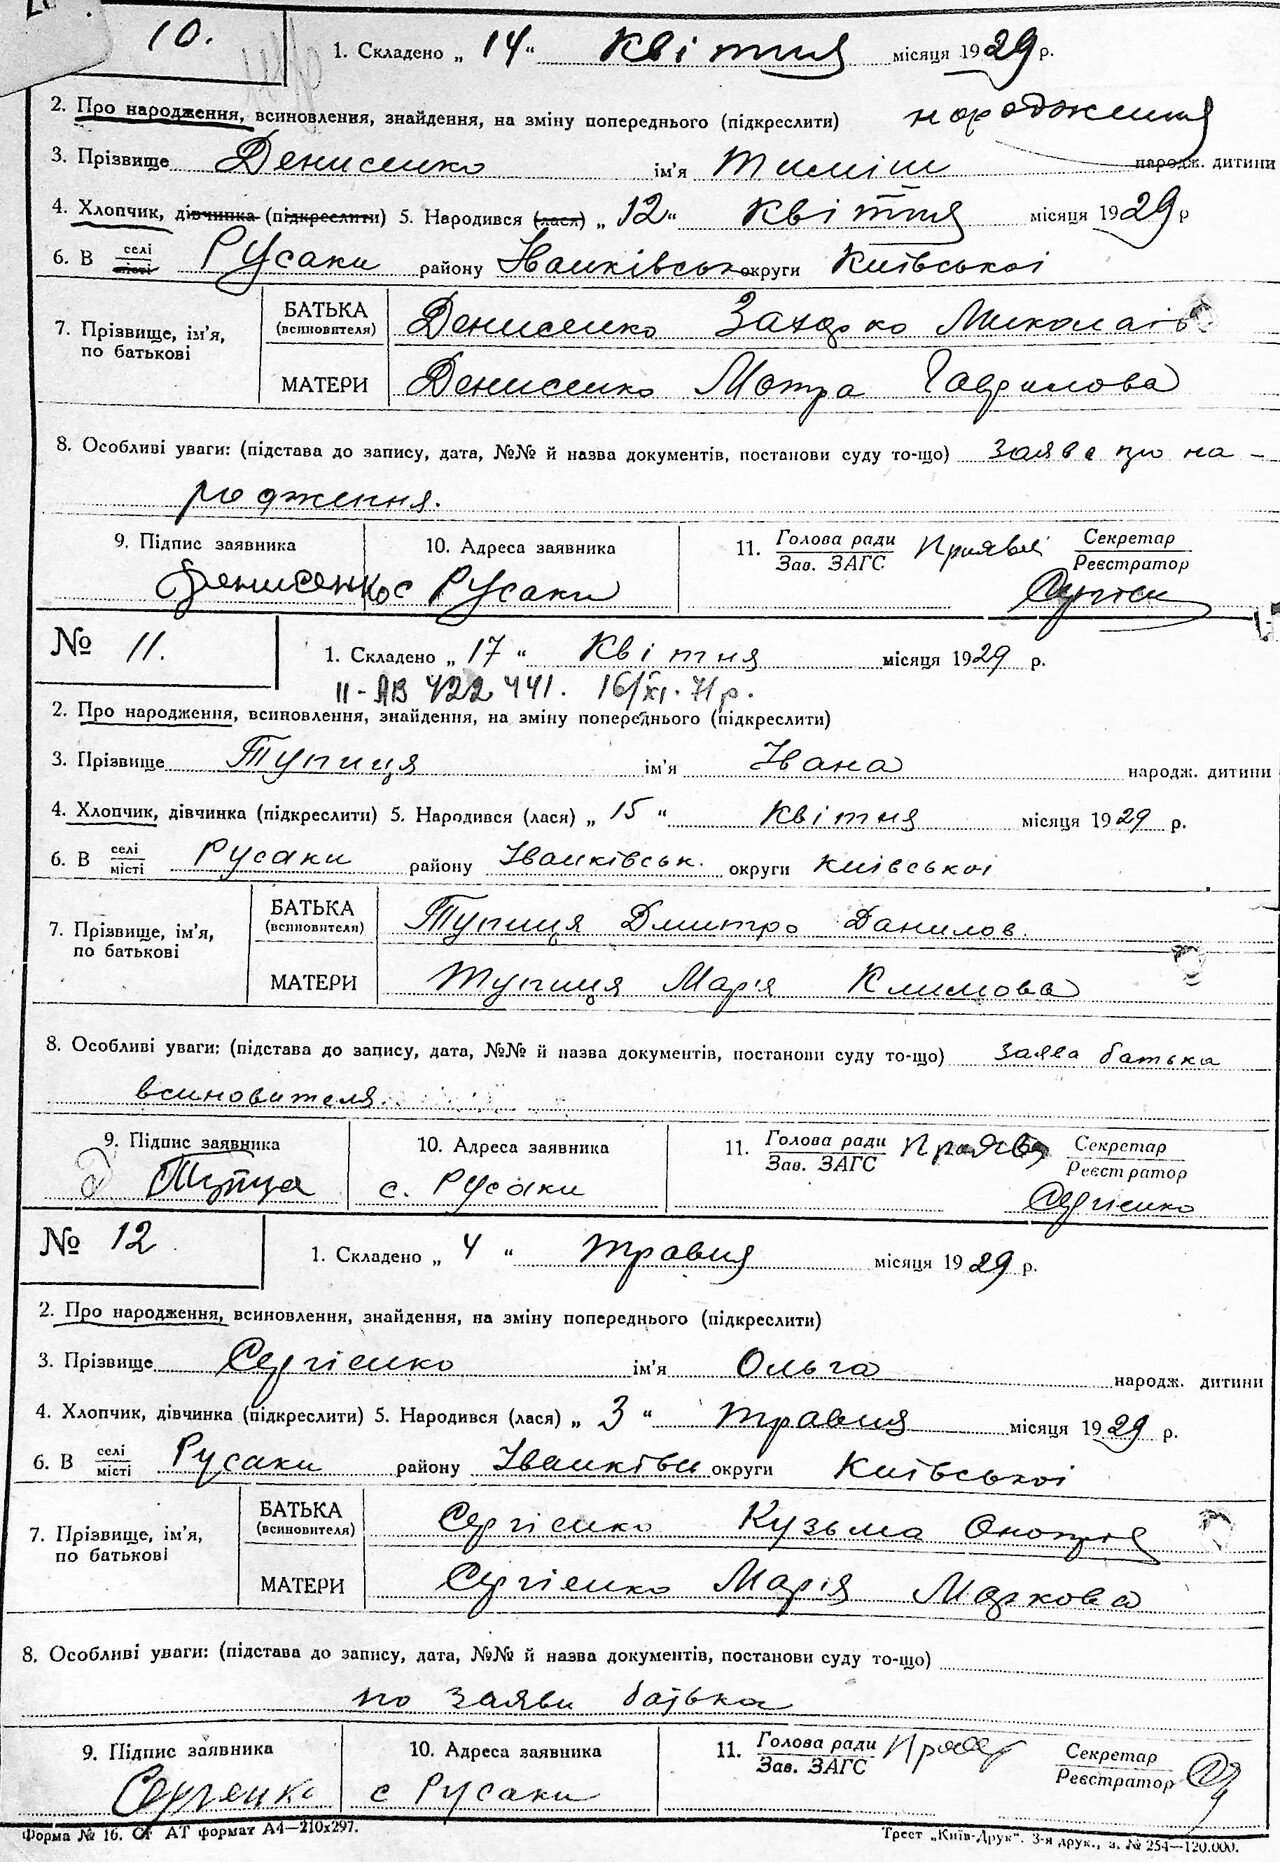 10. 1. Складено „ 14 “ Квітня місяця 1929 р.
2. Про народження, всиновлення, знайдення, на зміну попереднього (підкреслити) народження
3. Прізвище Денисенко ім'я Тиміш народж. дитини
4. Хлопчик, дівчинка (підкреслити) 5. Народився (лася) „ 12 “ Квітня місяця 1929 р
6. В селі місті Русаки району Іванківськ округи Київської
7. Прізвище, ім'я, по батькові
БАТЬКА (всиновителя) Денисенко Захарко Миколаїв
МАТЕРИ Денисенко Мотра Гаврилова
8. Особливі уваги: (підстава до запису, дата, №№ й назва документів, постанови суду то-що) заява про на-
родження.
9. Підпис заявника 10. Адреса заявника 11. Голова ради Зав. ЗАГС Секретар Реєстратор
Денисенко с Русаки
№ 11. 1. Складено „ 17 “ Квітня місяця 1929 р.
II-АВ 422441. 16/XI.71р.
2. Про народження, всиновлення, знайдення, на зміну попереднього (підкреслити)
3. Прізвище Тупиця ім'я Івана народж. дитини
4. Хлопчик, дівчинка (підкреслити) 5. Народився (лася) „ 15 “ Квітня місяця 1929 р.
6. В селі місті Русаки району Іванківськ. округи Київської
7. Прізвище, ім'я, по батькові
БАТЬКА (всиновителя) Тупиця Дмитро Данилов.
МАТЕРИ Тупиця Марія Климова
8. Особливі уваги: (підстава до запису, дата, №№ й назва документів, постанови суду то-що) Заява батька
всиновителя.
9. Підпис заявника 10. Адреса заявника 11. Голова ради Зав. ЗАГС Секретар Реєстратор
с. Русаки Сергієнко
№ 12 1. Складено „ 4 “ травня місяця 1929 р.
2. Про народження, всиновлення, знайдення, на зміну попереднього (підкреслити)
3. Прізвище Сергієнко ім'я Ольга народж. дитини
4. Хлопчик, дівчинка (підкреслити) 5. Народився (лася) „ 3 “ травня місяця 1929 р.
6. В селі місті Русаки району Іванківськ округи Київської
7. Прізвище, ім'я, по батькові
БАТЬКА (всиновителя) Сергієнко Кузьма
МАТЕРИ Сергієнко Марія Маркова
8. Особливі уваги: (підстава до запису, дата, №№ й назва документів, постанови суду то-що)
по заяви батька
9. Підпис заявника 10. Адреса заявника 11. Голова ради Зав. ЗАГС Секретар Реєстратор
Сергієнко с Русаки
Форма № 16. СГ АТ формат А4—210х297. Трест „Київ-Друк“. 3-я друк., з. № 254—120.000.